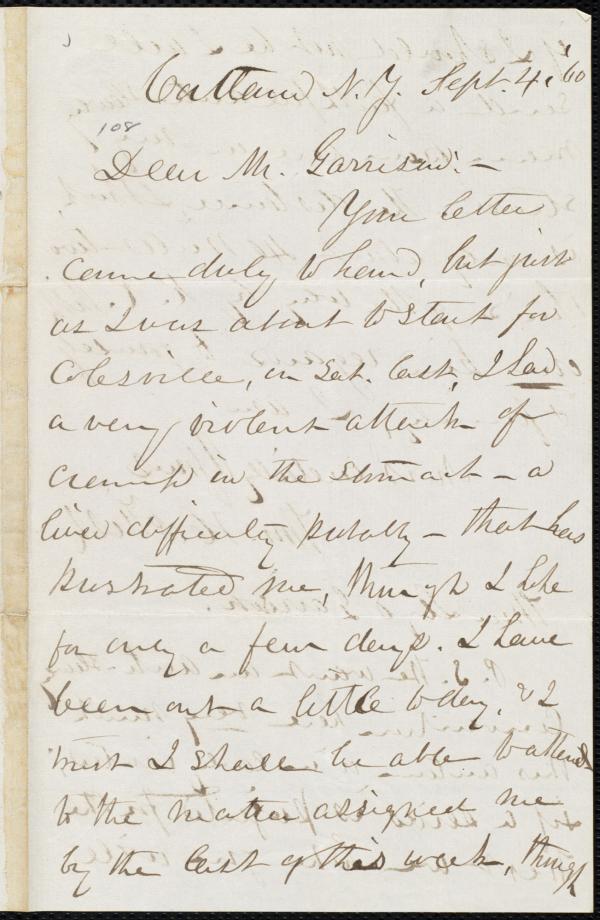 Cortland N.Y. Sept. 4, '60
108
Dear Mr. Garrison: -
Your letter
came duly to hand, but just
as I was about to start for
Colesville, on Sat. last, I had
a very violent attack of
cramp in the stomach - a
liver difficulty partly - that has
prostrated me, though I hope
for only a few days. I have
been out a little today, & I
trust I shall be able to attend
to the matter assigned me
by the last of this week, though